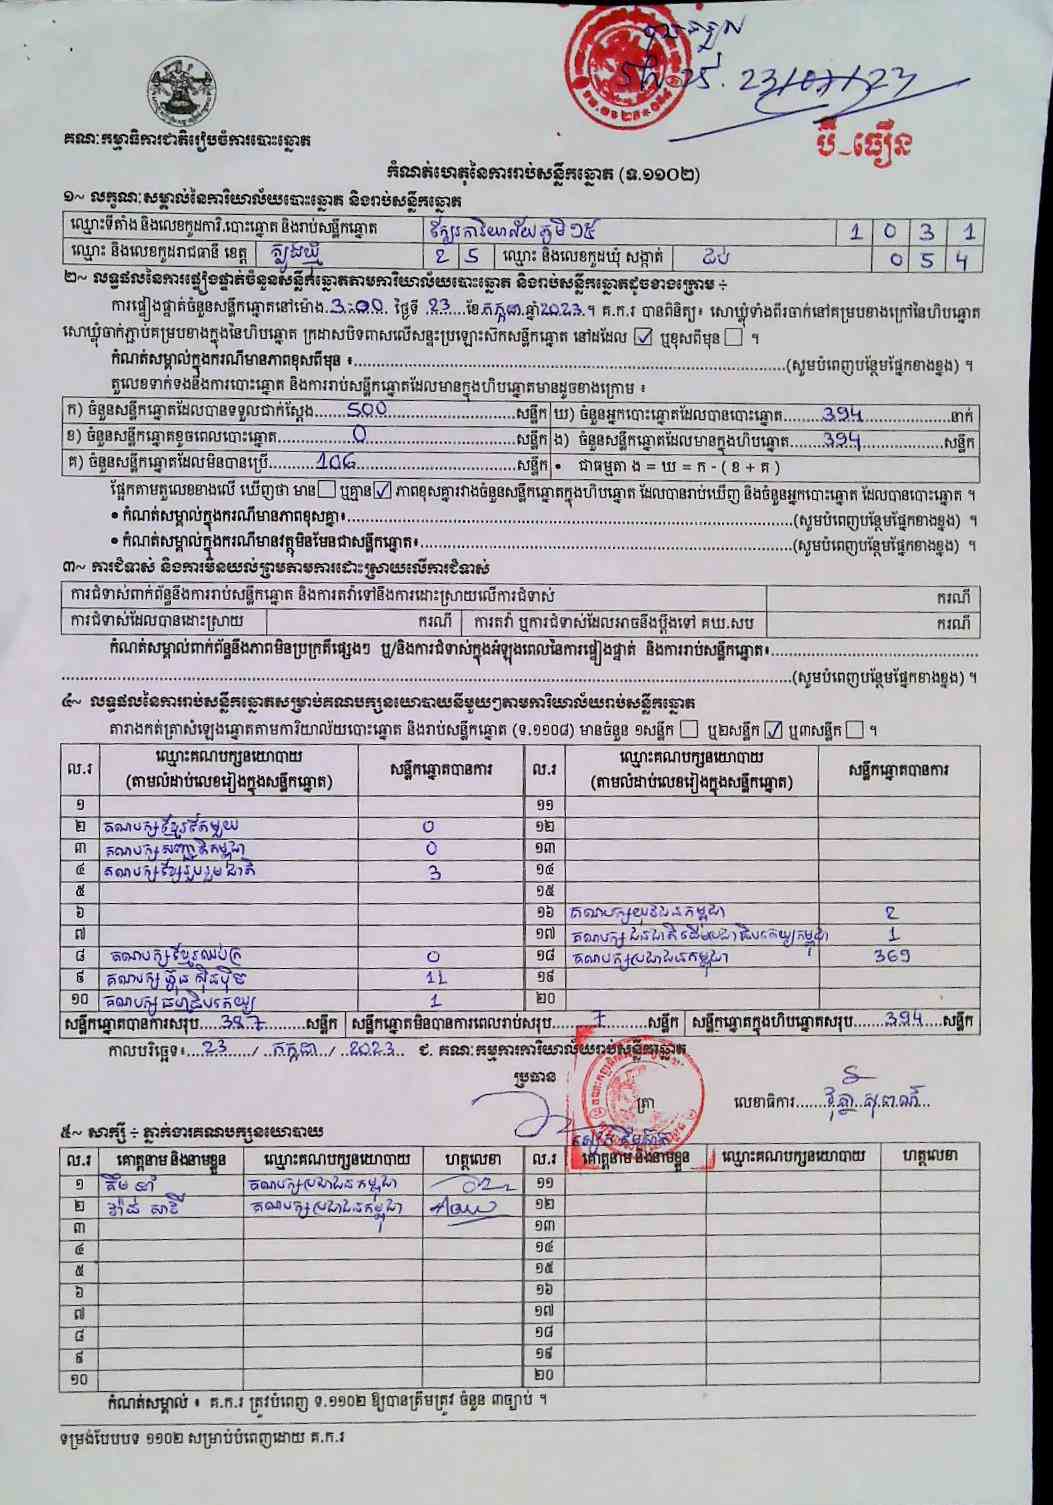 ២៣/០៧/២៣
ប៊ី_ធឿន
គណៈកម្មាធិការជាតិរៀបចំការបោះឆ្នោត
កំណត់ហេតុនៃការរាប់សន្លឹកឆ្នោត (ទ.១១០២)
១~ លក្ខណៈសម្គាល់នៃការិយាល័យបោះឆ្នោត និងរាប់សន្លឹកឆ្នោត
ឈ្មោះទីតាំង និងលេខកូដការិ.បោះឆ្នោត និងរាប់សន្លឹកឆ្នោត 1 0 3 1
ឈ្មោះ និងលេខកូដរាជធានី ខេត្ត ត្បូងឃ្មុំ 2 5 ឈ្មោះ និងលេខកូដឃុំ សង្កាត់ 0 5 4
២~ លទ្ធផលនៃការផ្ទៀងផ្ទាត់ចំនួនសន្លឹកឆ្នោតតាមការិយាល័យបោះឆ្នោត និងរាប់សន្លឹកឆ្នោតដូចខាងក្រោម ÷
ការផ្ទៀងផ្ទាត់ចំនួនសន្លឹកឆ្នោតនៅម៉ោង.3:00. ថ្ងៃទី .23....ខែ.កក្កដា.ឆ្នាំ2023.។ គ.ក.រ បានពិនិត្យ៖ សោឃ្លុំទាំងពីរចាក់នៅគម្របខាងក្រៅនៃហិបឆ្នោត
សោឃ្លុំចាក់ភ្ជាប់គម្របខាងក្នុងនៃហិបឆ្នោត ក្រដាសបិទពាសលើសន្ទះប្រឡោះស៊កសន្លឹកឆ្នោត នៅដដែល ☑ ឬខុសពីមុន ☐ ។
កំណត់សម្គាល់ក្នុងករណីមានភាពខុសពីមុន ៖...(សូមបំពេញបន្ថែមផ្នែកខាងខ្នង) ។
តួលេខទាក់ទងនឹងការបោះឆ្នោត និងការរាប់សន្លឹកឆ្នោតដែលមានក្នុងហិបឆ្នោតមានដូចខាងក្រោម ៖
ក) ចំនួនសន្លឹកឆ្នោតដែលបានទទួលជាក់ស្ដែង......500......សន្លឹក ឃ) ចំនួនអ្នកបោះឆ្នោតដែលបានបោះឆ្នោត......394......នាក់
ខ) ចំនួនសន្លឹកឆ្នោតខូចពេលបោះឆ្នោត......0......សន្លឹក ង) ចំនួនសន្លឹកឆ្នោតដែលមានក្នុងហិបឆ្នោត......394......សន្លឹក
គ) ចំនួនសន្លឹកឆ្នោតដែលមិនបានប្រើ......106......សន្លឹក • ជាធម្មតា ង = ឃ = ក - ( ខ + គ )
ផ្អែកតាមតួលេខខាងលើ ឃើញថា មាន ☐ ឬគ្មាន ☑ ភាពខុសគ្នារវាងចំនួនសន្លឹកឆ្នោតក្នុងហិបឆ្នោត ដែលបានរាប់ឃើញ និងចំនួនអ្នកបោះឆ្នោត ដែលបានបោះឆ្នោត ។
• កំណត់សម្គាល់ក្នុងករណីមានភាពខុសគ្នា៖...(សូមបំពេញបន្ថែមផ្នែកខាងខ្នង) ។
• កំណត់សម្គាល់ក្នុងករណីមានវត្ថុមិនមែនជាសន្លឹកឆ្នោត៖...(សូមបំពេញបន្ថែមផ្នែកខាងខ្នង) ។
៣~ ការជំទាស់ និងការមិនយល់ព្រមតាមការដោះស្រាយលើការជំទាស់
ការជំទាស់ពាក់ព័ន្ធនឹងការរាប់សន្លឹកឆ្នោត និងការតវ៉ាទៅនឹងការដោះស្រាយលើការជំទាស់ ករណី
ការជំទាស់ដែលបានដោះស្រាយ ករណី ការតវ៉ា ឬការជំទាស់ដែលអាចនឹងប្ដឹងទៅ គឃ.សប ករណី
កំណត់សម្គាល់ពាក់ព័ន្ធនឹងភាពមិនប្រក្រតីផ្សេងៗ ឬ/និងការជំទាស់ក្នុងអំឡុងពេលនៃការផ្ទៀងផ្ទាត់ និងការរាប់សន្លឹកឆ្នោត៖...
...(សូមបំពេញបន្ថែមផ្នែកខាងខ្នង) ។
៤~ លទ្ធផលនៃការរាប់សន្លឹកឆ្នោតសម្រាប់គណបក្សនយោបាយនីមួយៗតាមការិយាល័យរាប់សន្លឹកឆ្នោត
តារាងកត់ត្រាសំឡេងឆ្នោតតាមការិយាល័យបោះឆ្នោត និងរាប់សន្លឹកឆ្នោត (ទ.១១០៨) មានចំនួន ១សន្លឹក ☐ ឬ២សន្លឹក ☑ ឬ៣សន្លឹក ☐ ។
ល.រ ឈ្មោះគណបក្សនយោបាយ (តាមលំដាប់លេខរៀងក្នុងសន្លឹកឆ្នោត) សន្លឹកឆ្នោតបានការ ល.រ ឈ្មោះគណបក្សនយោបាយ (តាមលំដាប់លេខរៀងក្នុងសន្លឹកឆ្នោត) សន្លឹកឆ្នោតបានការ
១ ១១
២ គណបក្សខ្មែរតែមួយ 0 ១២
៣ គណបក្សសញ្ជាតិកម្ពុជា 0 ១៣
៤ គណបក្សខ្មែររួបរួមជាតិ 3 ១៤
៥ ១៥
៦ ១៦ គណបក្សយុវជនកម្ពុជា 2
៧ ១៧ គណបក្សជនជាតិដើមប្រជាធិបតេយ្យកម្ពុជា 1
៨ គណបក្សខ្មែរឈប់ក្រ 0 ១៨ គណបក្សប្រជាជនកម្ពុជា 369
៩ គណបក្សហ៊្វុនស៊ិនប៉ិច 11 ១៩
១០ គណបក្សធម្មាធិបតេយ្យ 1 ២០
សន្លឹកឆ្នោតបានការសរុប....387......សន្លឹក សន្លឹកឆ្នោតមិនបានការពេលរាប់សរុប......7......សន្លឹក សន្លឹកឆ្នោតក្នុងហិបឆ្នោតសរុប......394....សន្លឹក
កាលបរិច្ឆេទ៖..23..../..កក្កដា../..2023.. ជ. គណៈកម្មការការិយាល័យរាប់សន្លឹកឆ្នោត
ប្រធាន
ត្រា លេខាធិការ......
៥~ សាក្សី ÷ ភ្នាក់ងារគណបក្សនយោបាយ
ល.រ គោត្តនាម និងនាមខ្លួន ឈ្មោះគណបក្សនយោបាយ ហត្ថលេខា ល.រ គោត្តនាម និងនាមខ្លួន ឈ្មោះគណបក្សនយោបាយ ហត្ថលេខា
១ គណបក្សប្រជាជនកម្ពុជា ១១
២ គណបក្សប្រជាជនកម្ពុជា ១២
៣ ១៣
៤ ១៤
៥ ១៥
៦ ១៦
៧ ១៧
៨ ១៨
៩ ១៩
១០ ២០
កំណត់សម្គាល់ ៖ គ.ក.រ ត្រូវបំពេញ ទ.១១០២ ឱ្យបានត្រឹមត្រូវ ចំនួន ៣ច្បាប់ ។
ទម្រង់បែបបទ ១១០២ សម្រាប់បំពេញដោយ គ.ក.រ